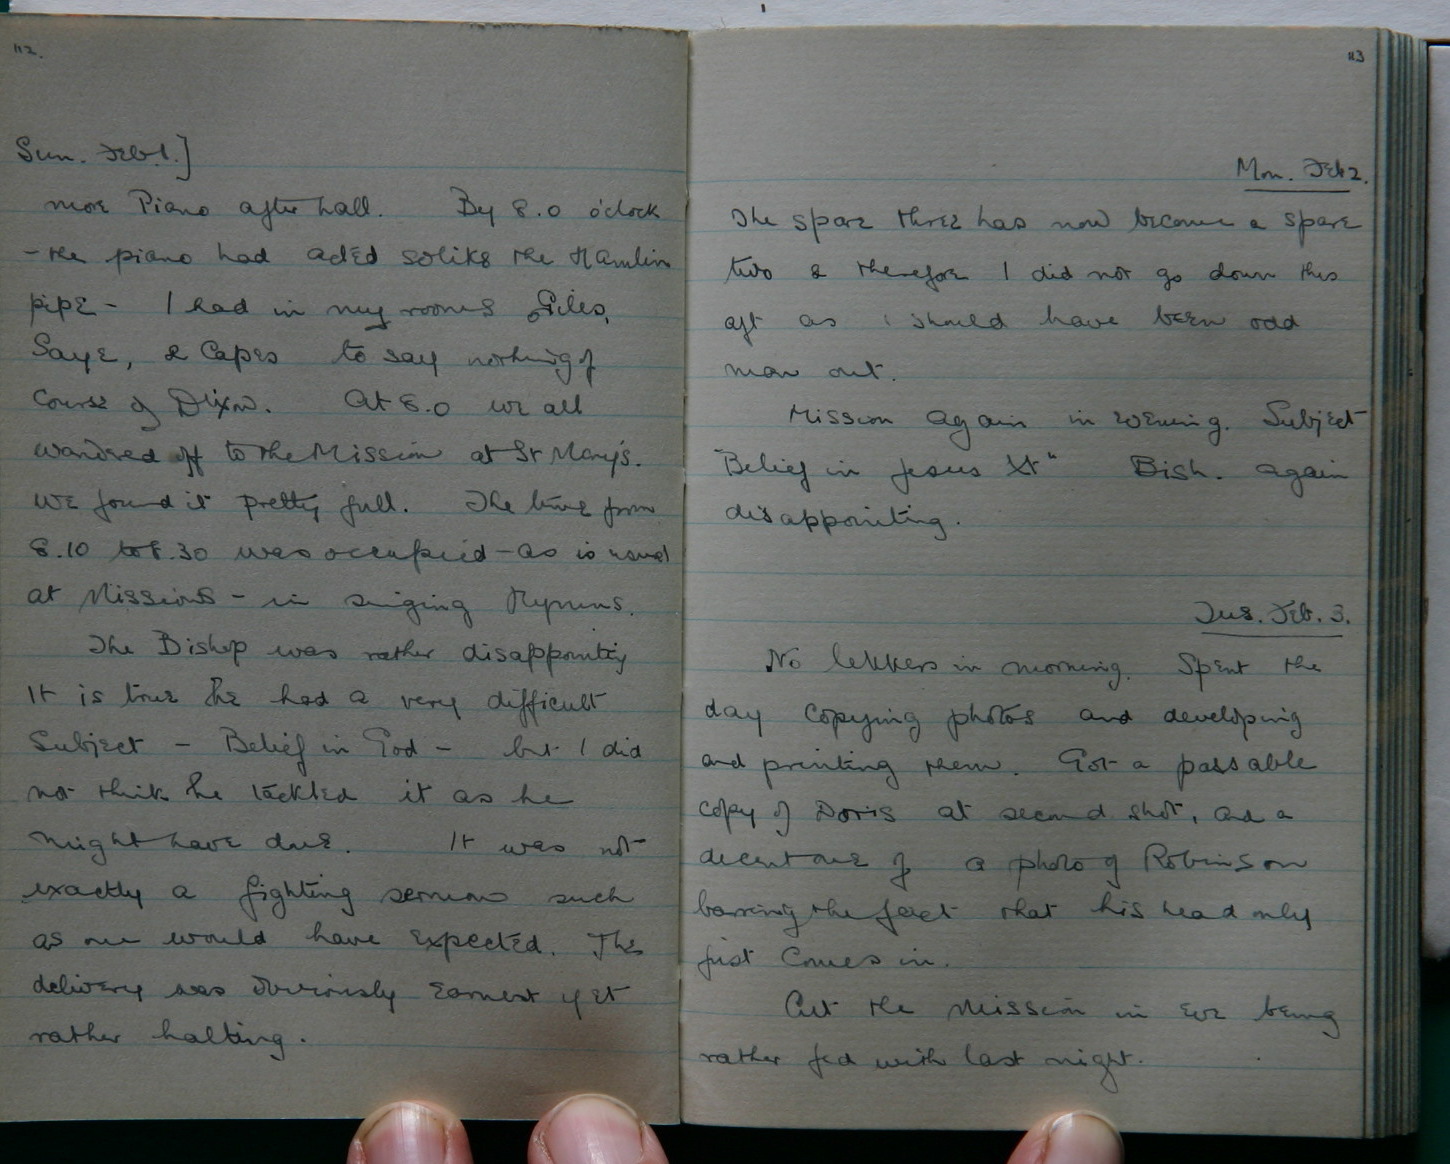 112.
Sun. Feb. 1.]
more Piano after hall. By 8.0 o'clock
- the piano had acted so like the Hamlin
pipe - I had in my rooms Giles,
Saye, & Capes to say nothing of
course of Dixon. At 8.0 we all
wandred off to the Mission at St Mary's.
We found it pretty full. The time from
8.10 to 8.30 was occupied - as is usual
at Missions - in singing Hymns.
The Bishop was rather disappointing
It is true he had a very difficult
Subject - Belief in God - but I did
not think he tackled it as he
might have done. It was not
exactly a fighting sermon such
as one would have expected. The
delivery was obviously earnest yet
rather halting.
113
Mon. Feb 2.
The spare three has now become a spare
two & therefore I did not go down this
aft as I should have been odd
man out.
Mission again in evening. Subject
"Belief in Jesus Xt" Bish. again
disappointing.
Tues. Feb. 3.
No lekkers in morning. Spent the
day copying photos and developing
and printing them. Got a passable
copy of Doris at second shot, and a
decent one of a photo of Robinson
barring the fact that his head only
just comes in.
Cut the Mission in eve being
rather fed with last night.